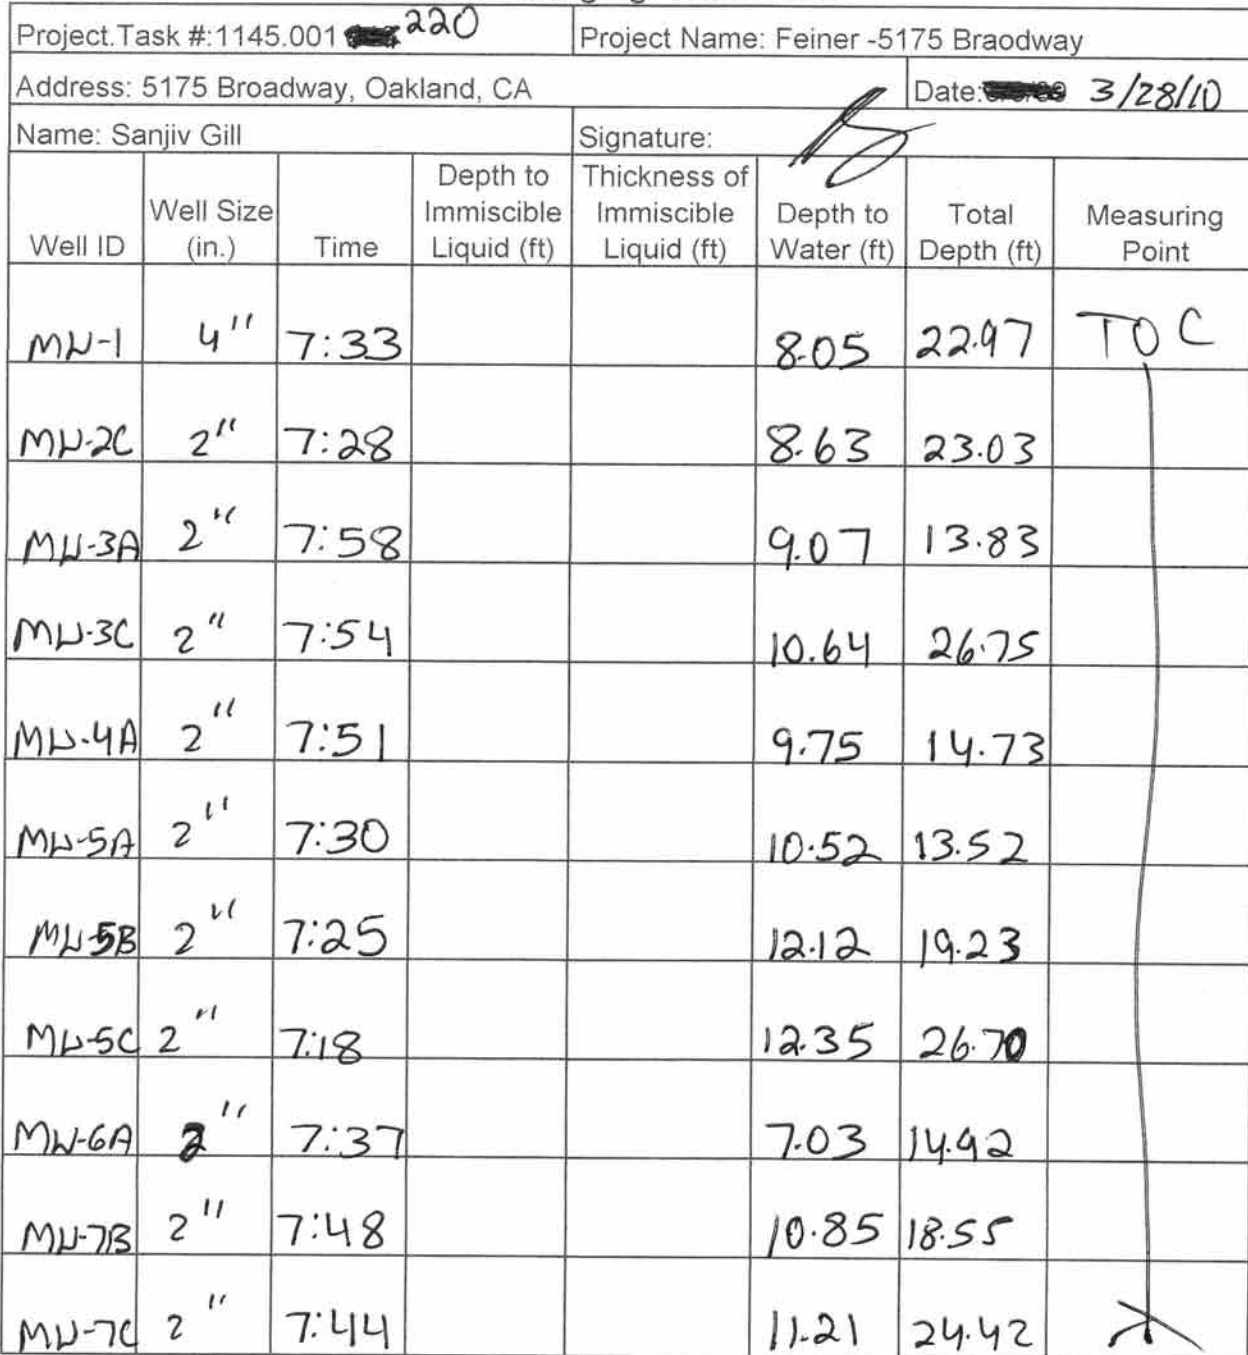 Project.Task #:1145.001 220 Project Name: Feiner -5175 Braodway
Address: 5175 Broadway, Oakland, CA Date: 3/28/10
Name: Sanjiv Gill Signature:
Well ID Well Size (in.) Time Depth to Immiscible Liquid (ft) Thickness of Immiscible Liquid (ft) Depth to Water (ft) Total Depth (ft) Measuring Point
MW-1 4" 7:33 8.05 22.97 TOC
MW-2C 2" 7:28 8.63 23.03
MW-3A 2" 7:58 9.07 13.83
MW-3C 2" 7:54 10.64 26.75
MW-4A 2" 7:51 9.75 14.73
MW-5A 2" 7:30 10.52 13.52
MW-5B 2" 7:25 12.12 19.23
MW-5C 2" 7:18 12.35 26.70
MW-6A 2" 7:37 7.03 14.92
MW-7B 2" 7:48 10.85 18.55
MW-7C 2" 7:44 11.21 24.42